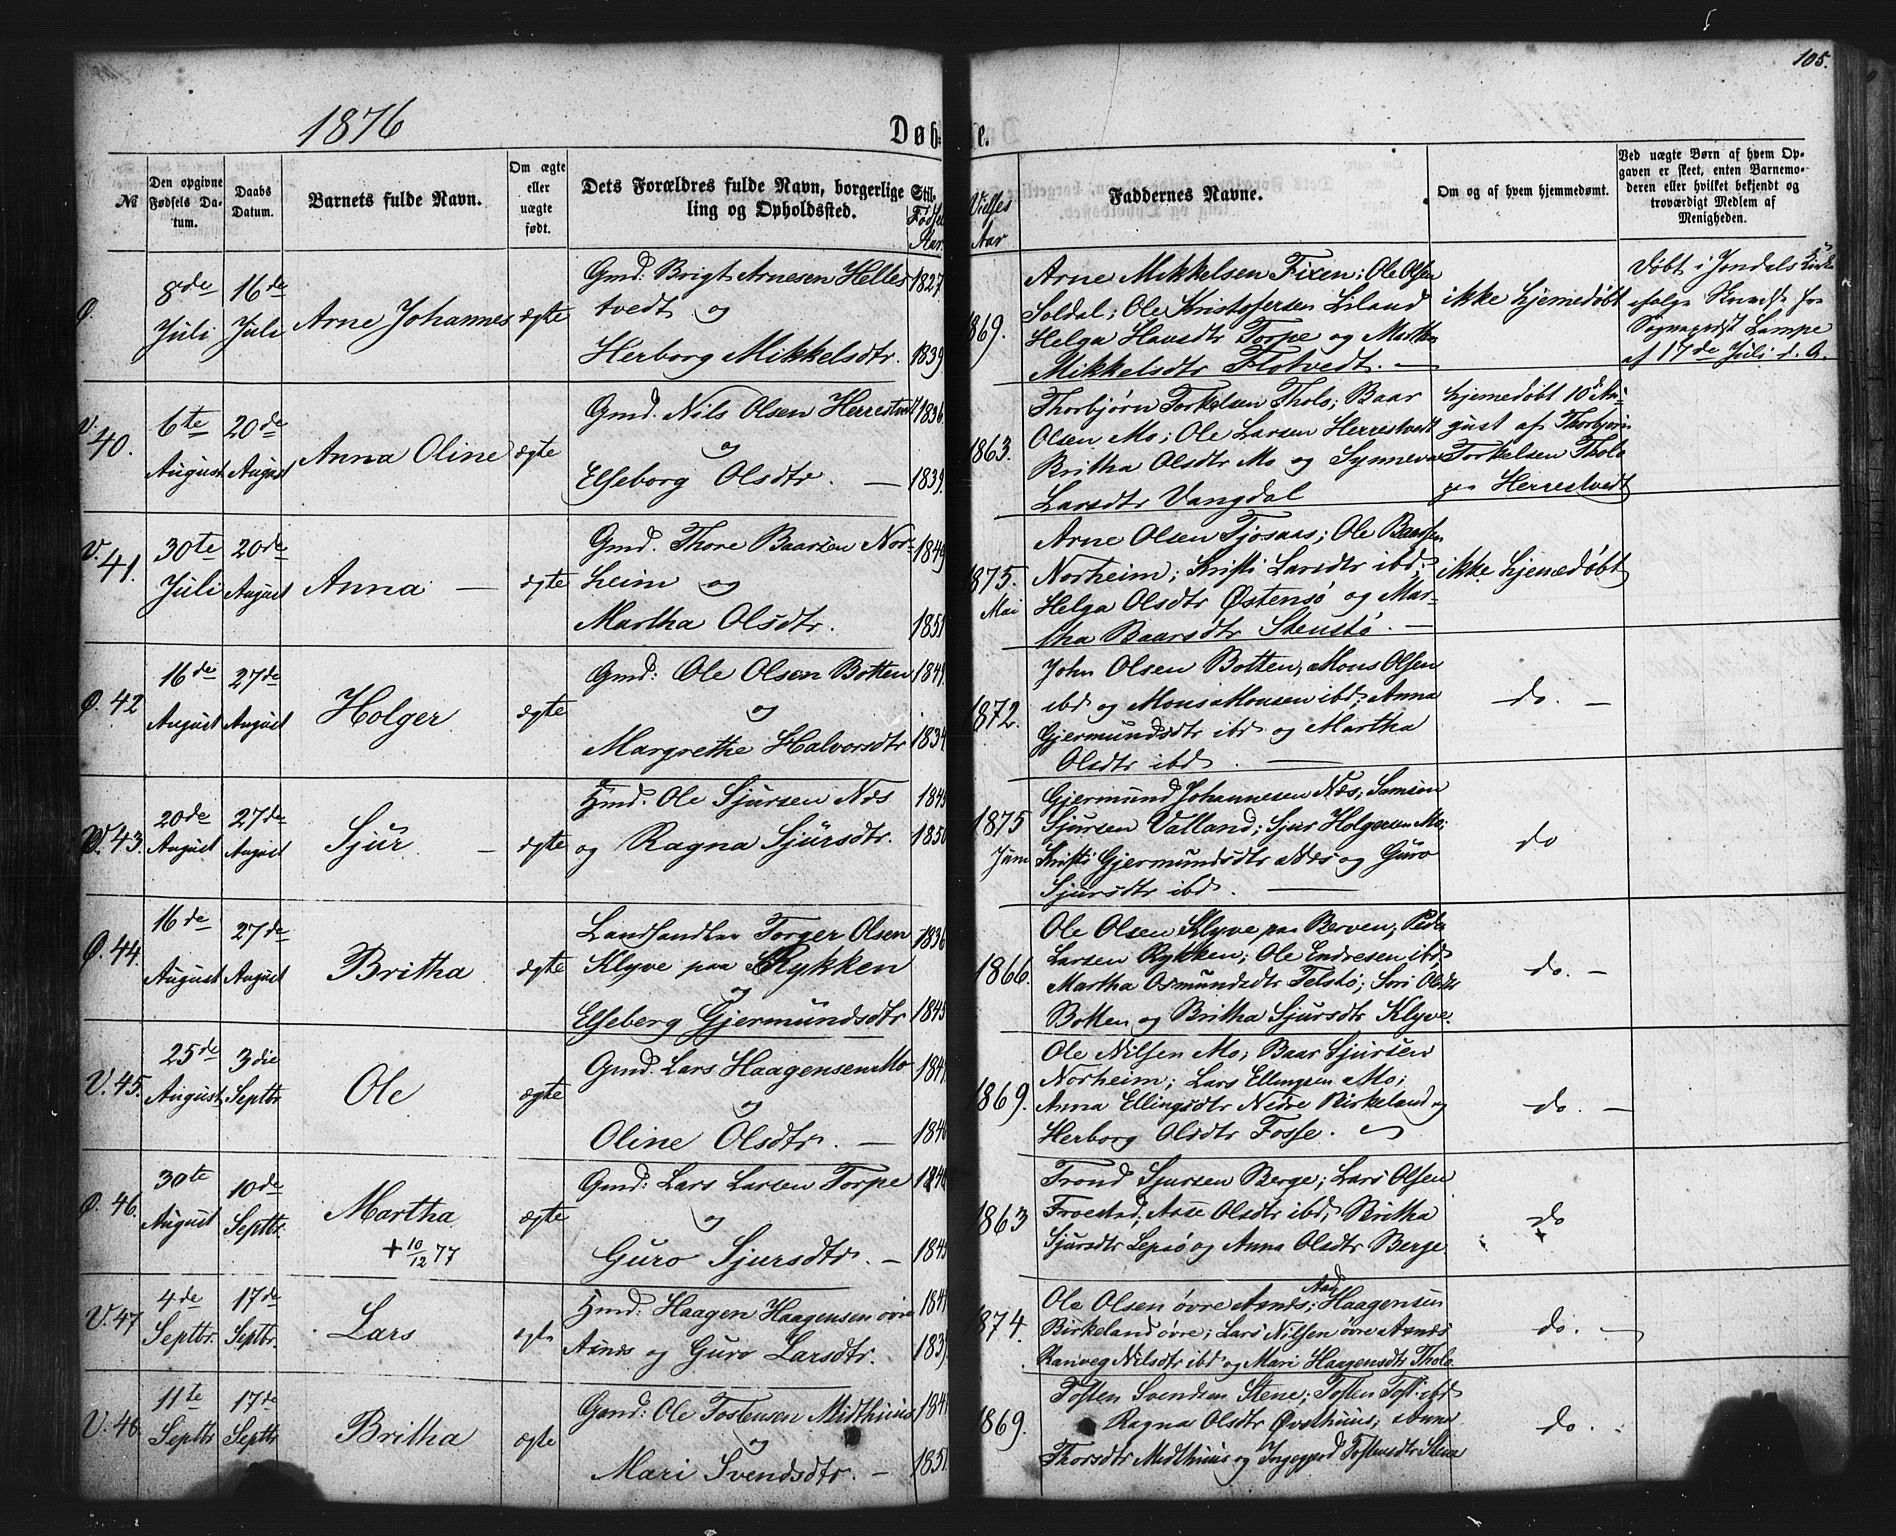 105.
1876
Døbte.
№
Den opgivne Fødsels Datum.
Daabs Datum.
Barnets fulde Navn.
Om ægte eller uægte født.
Dets Forældres fulde Navn, borgerlige Stilling og Opholdssted.
Fødsels Aar.
Vielses Aar
Faddernes Navne.
Om og af hvem hjemmedømt.
Ved uægte Børn af hvem Opgaven er skeet, enten Barnemoderen eller hvilket bekjendt og troværdigt Medlem af Menigheden.
Ø.
8de Juli
16de Juli
Arne Johannes
ægte
Gmd. Brigt Arnesen Helles
tvedt og
Herborg Mikkelsdtr.
1827
1839
1869.
Arne Mikkelsen Fixen; Ole Olsen
Soldal; Ole Kristofersen Liland
Helga Hansdtr Torpe og Martha
Mikkelsdtr Flotvedt. —
ikke hjemedøbt
Døbt i Jondals Kirke
ifølge
Sognaprest Lampe
af 17de Juli d. A.
V. 40.
6te August
20de August
Anna Oline
ægte
Gmd. Nils Olsen Herrestvedt
og
Elseborg Olsdtr. —
1836.
1839.
1863.
Thorbjørn Torkelsen Tholo; Baar
Olsen Mo; Ole Larsen Herrestvedt
Britha Olsdtr Mo og Synneva
Larsdtr Vangdal
hjemedøbt 10de Au-
gust af Thorbjørn
Torkelsen Tholo
paa Herrestvedt
V. 41.
30te Juli
20de August
Anna —
ægte
Gmd. Thore Baarsen Nor-
heim og
Martha Olsdtr.
1849
1851
1875. Mai
Arne Olsen Tjosaas; Ole Baarsen
Norheim; Kristi Larsdtr ibd;
Helga Olsdtr Østensø og Mar-
tha Baarsdtr Stenstø. —
ikke hjemedøbt
Ø. 42
16de August
27de August
Holger
ægte
Gmd: Ole Olsen Botten
og
Margrethe Halvorsdtr
1841.
1834
1872.
John Olsen Botten; Mons Olsen
ibd og Mons Monsen ibd; Anna
Gjermundsdtr ibd og Martha
Olsdtr ibd. —
do. —
V. 43.
20de August
27de August
Sjur —
ægte
Hmd. Ole Sjursen Næs
og Ragna Sjursdtr.
1850
1875 Juni
Gjermund Johannesen Næs; Samson
Sjursen Valland; Sjur Holgersen Mo;
Kristi Gjermundsdtr Næs og Guro
Sjursdtr ibd. —
do
Ø. 44.
16de August
27de August
Britha
ægte
Landhandler Torger Olsen
Klyve paa Rykken
og
Elseberg Gjermundsdtr
1836
1845
1866.
Ole Olsen Klyve paa Berven; Peder
Larsen Rykken; Ole Endresen ibd;
Martha Osmundsdtr Telstø; Siri Olsdtr
Botten og Britha Sjursdtr Klyve.
do. —
V. 45.
25de August
3die Septbr
Ole
ægte
Gmd. Lars Haagensen Mo
og
Oline Olsdtr. —
1841.
1846
1869.
Ole Nilsen Mo; Baar Sjursen
Norheim; Lars Ellingsen Mo;
Anna Ellingsdtr Nedre Birkeland og
Herborg Olsdtr Fosse.
do. —
Ø. 46.
30te August
10de Septbr.
Martha
+ 10/12 77
ægte
Gmd: Lars Larsen Torpe
og
Guro Sjursdtr. —
1840
1863
Trond Sjursen Berge; Lars Olsen
Froestad; Aase Olsdtr ibd; Britha
Sjursdtr Lepsø og Anna Olsdtr Berge.
do
V. 47
4de Septbr.
17de Septbr.
Lars
ægte
Hmd: Haagen Haagensen øvre
Axnæs og Guro Larsdtr.
1839
1874.
Ole Olsen øvre Axnæs; Haagensen
Birkeland øvre; Lars Nilsen øvre Axnæs
Ranveg Nilsdtr ibd og Mari Haagensdtr Tholo
do. —
V. 48.
11te Septbr
17de Septbr
Britha
ægte
Gmd: Ole Tostensen Midthuus
og
Mari Svendsdtr. —
1851.
1869.
Tosten Svendsen Stene; Tosten Tost. ibd
Ragna Olsdtr Øvsthuus; Anna
Thorsdtr Midthuus og Ingegjerd Tostensdtr Stene
do. .